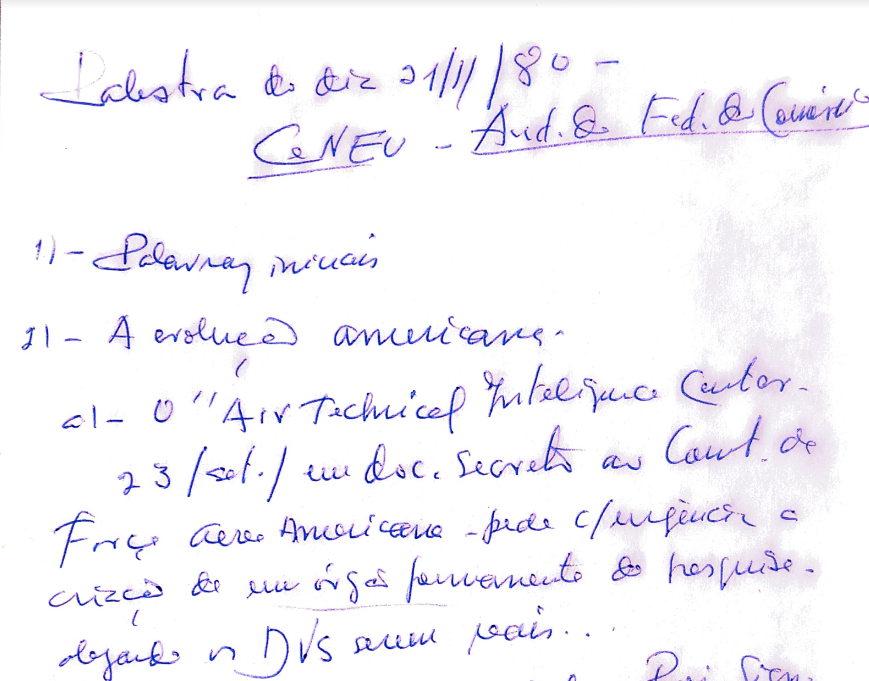 Palestra do dia 21/11/80 -
CeNEU - Aud. da Fed. do Comércio
1) - Palavras iniciais
2) - A evolução americana.
a) - O "Air Technical Inteligence Center -
23/set./ em doc. secreto ao Comt. da
Força Aérea Americana - pede c/urgência a
criação de um órgão permanente de pesquisa -
alegando os DVS serem reais...